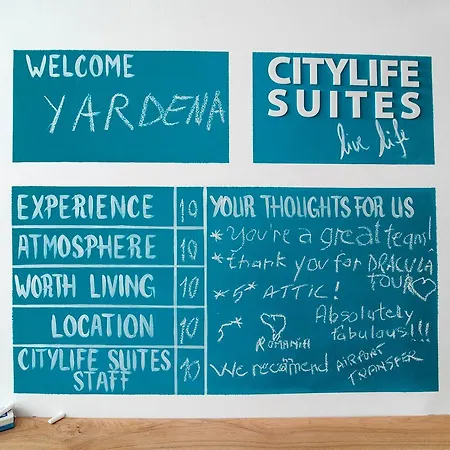 WELCOME
YARDENA
CITYLIFE
SUITES
live life
EXPERIENCE 10
ATMOSPHERE 10
WORTH LIVING 10
LOCATION 10
CITYLIFE SUITES
STAFF 10
YOUR THOUGHTS FOR US
*You're a great team!
*thank you for DRACULA
TOUR
*5* ATTIC!
5*
ROMANIA
Absolutely
fabulous!!!
We recomend AIRPORT
TRANSFER